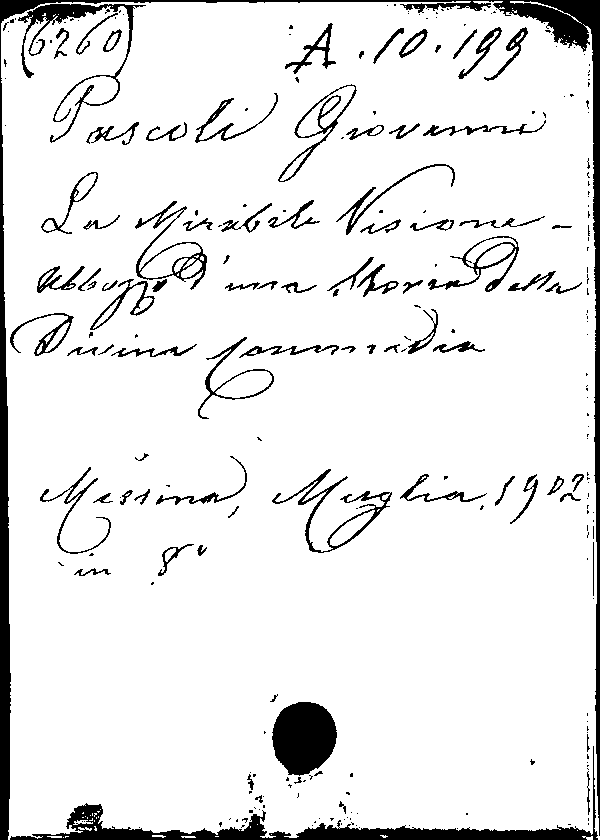 (6260) A.10.199
Pascoli Giovanni
La Mirabile Visione -
Abbozzo d'una Storia della
Divina Commedia
Messina, Muglia, 1902
in 8°